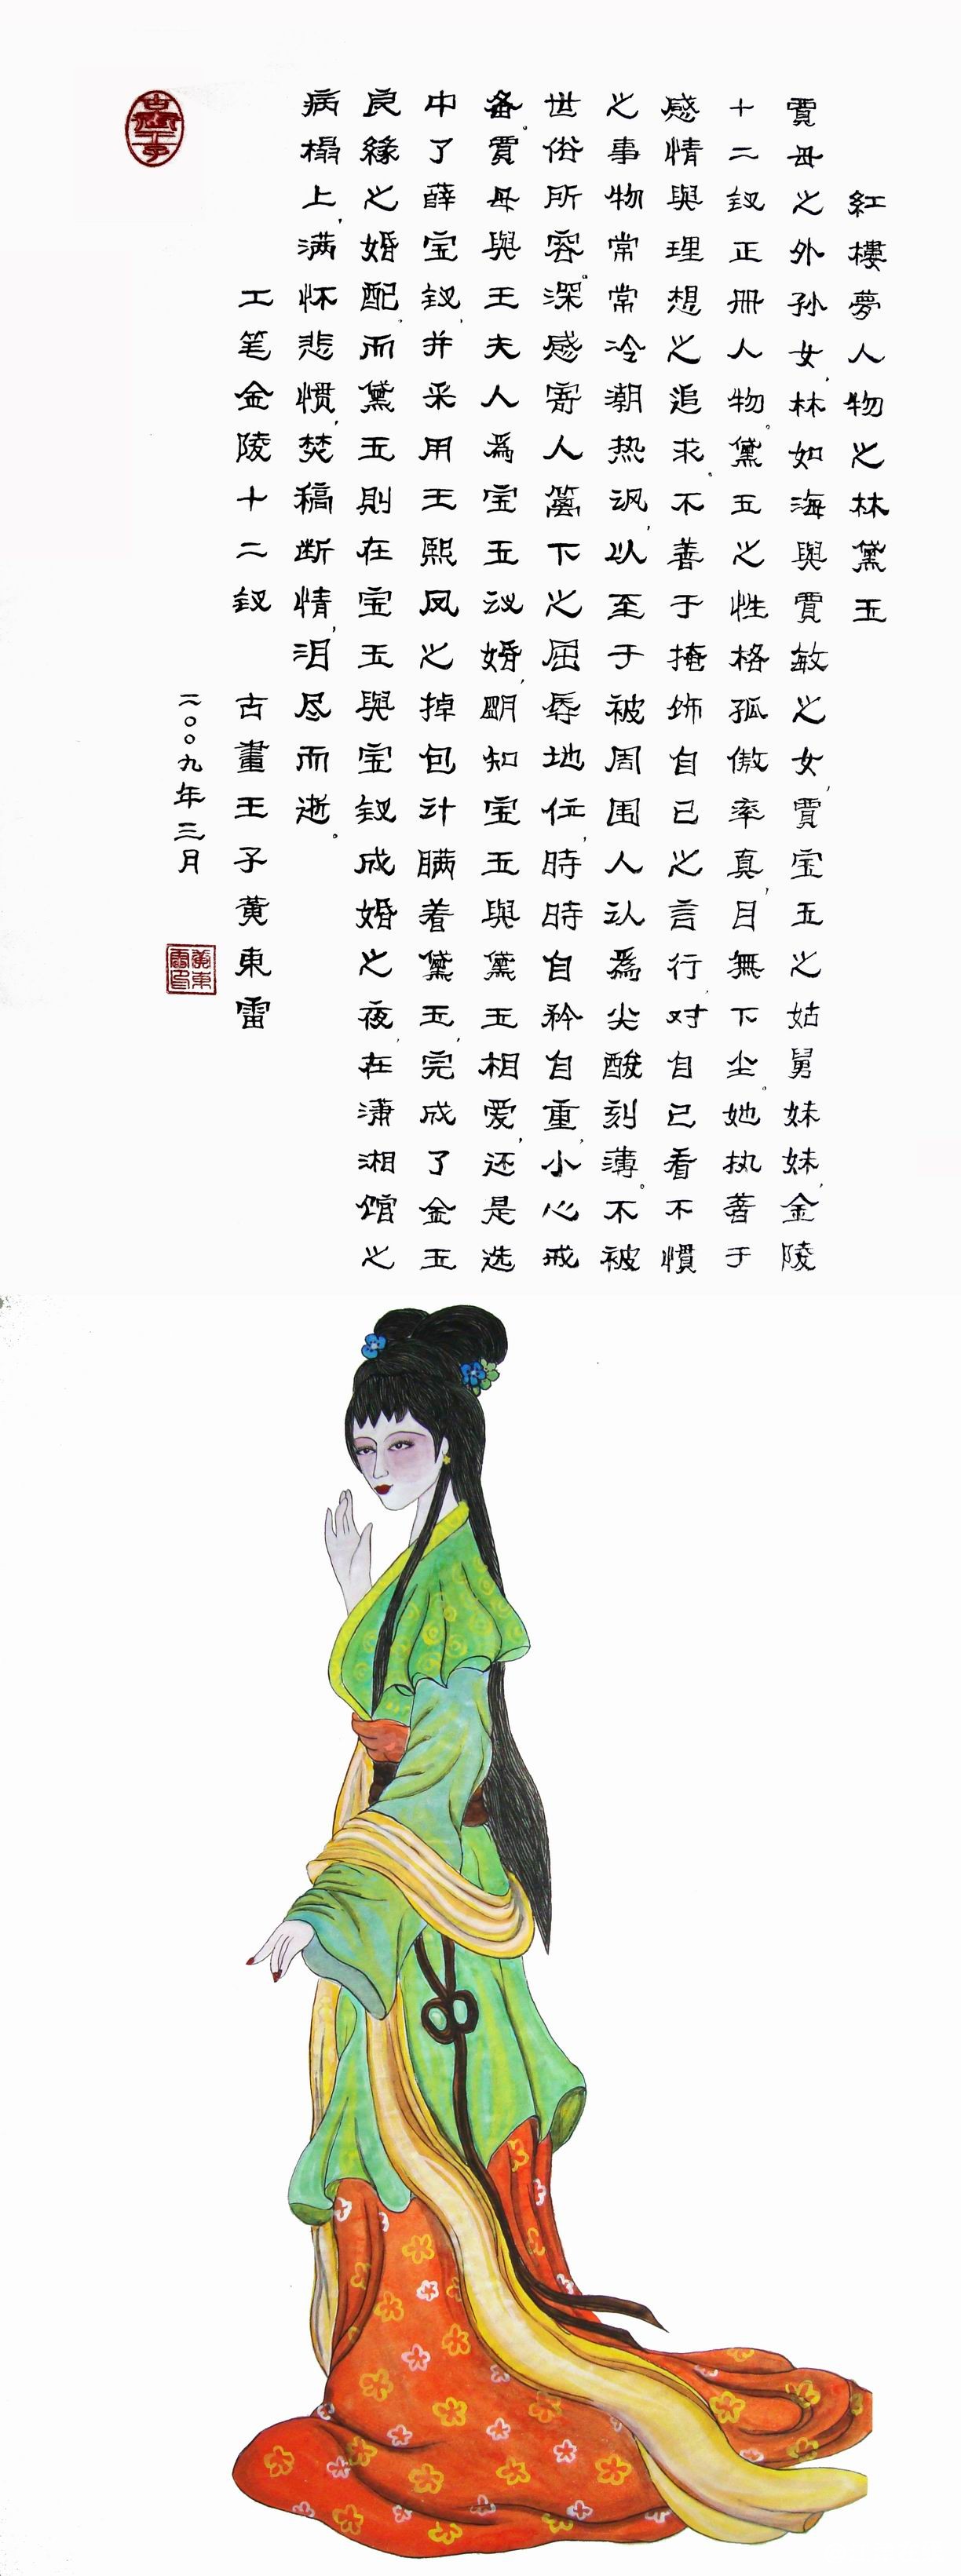 紅樓夢人物之林黛玉
賈母之外孙女,林如海與賈敏之女,賈宝玉之姑舅妹妹,金陵
十二钗正册人物。黛玉之性格孤傲率真,目無下尘。她执著于
感情與理想之追求。不善于掩饰自己之言行,对自己看不慣
之事物常常冷潮热讽,以至于被周围人认爲尖酸刻薄。不被
世俗所容。深感寄人篱下之屈辱地位,時時自矜自重,小心戒
备。賈母與王夫人爲宝玉议婚,明知宝玉與黛玉相爱,还是选
中了薛宝钗,并采用王熙凤之掉包计瞒着黛玉,完成了金玉
良緣之婚配,而黛玉則在宝玉與宝钗成婚之夜,在潇湘馆之
病榻上,满怀悲惯,焚稿断情,泪尽而逝。
工笔金陵十二钗 古畫王子黄東雷
二〇〇九年三月
黄東雷印